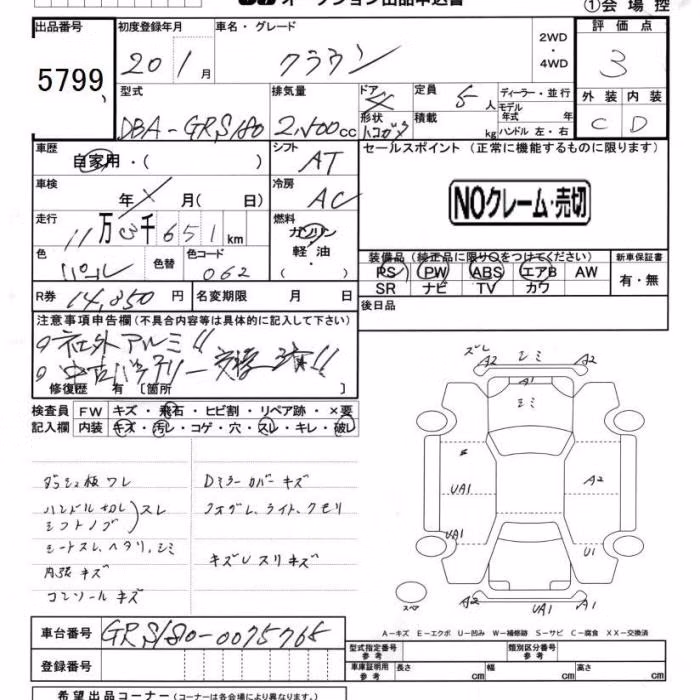 オークション出品申込書
①会場控
出品番号 初度登録年月 車名・グレード 2WD・4WD 評価点
5799 20年1月 クラウン 3
型式 排気量 ドア 定員 ディーラー・並行 外装 内装
DBA-GRS180 2,500cc 4 5人 C D
形状 ハコガタ 積載 kg モデル年式 年 ハンドル 左・右
車歴 自家用・( ) シフト AT セールスポイント(正常に機能するものに限ります)
車検 年 月( 日) 冷房 AC NOクレーム・売切
走行 11万3千651km 燃料 ガソリン 軽油・( )
色 パール 色替 色コード 062
装備品(純正品に限り○をつけてください) 新車保証書
PS PW ABS エアB AW 有・無
SR ナビ TV カワ
R券 14,850円 名変期限 月 日 後日品
注意事項申告欄(不具合内容等は具体的に記入して下さい)
社外アルミ!!
中古バッテリー交換済!!
修復歴 有 〔箇所 〕
検査員 FW キズ・飛石・ヒビ割・リペア跡・×要
記入欄 内装 キズ・汚レ・コゲ・穴・スレ・キレ・破レ
ダッシュ板ワレ Dミラーカバーキズ
ハンドル
シフトノブ スレ フォグL、ライト、クモリ
シートスレ、ヘタリ、シミ
内張キズ キズUスリキズ
コンソールキズ
ズレ A2 シミ A2
A1
シミ
UA1 A2
UA1 U1
スペア A2 UA1 A1
A-キズ E-エクボ U-凹み W-補修跡 S-サビ C-腐食 XX-交換済
車台番号 GRS180-0075765
登録番号
型式指定番号 参考 類別区分番号 参考
車庫証明用 参考 長さ cm 幅 cm 高さ cm
希望出品コーナー(コーナーは各会場により異なります。)